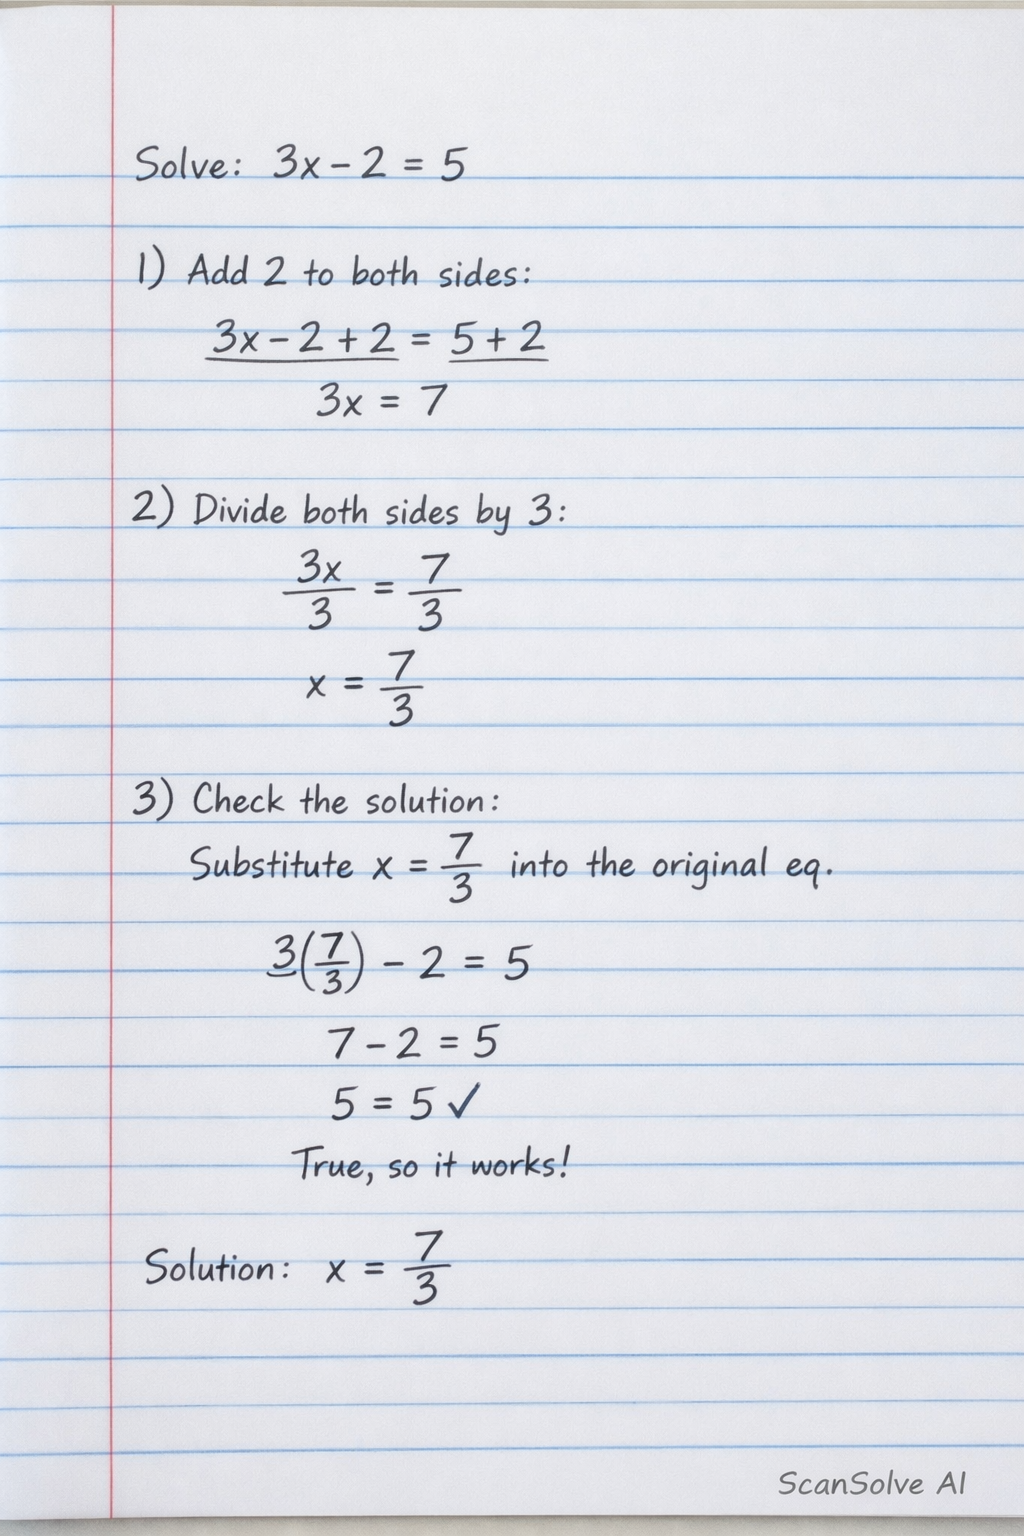 Solve: 3x - 2 = 5
1) Add 2 to both sides:
3x - 2 + 2 = 5 + 2
3x = 7
2) Divide both sides by 3:
3x/3 = 7/3
x = 7/3
3) Check the solution:
Substitute x = 7/3 into the original eq.
3(7/3) - 2 = 5
7 - 2 = 5
5 = 5 ✓
True, so it works!
Solution: x = 7/3
ScanSolve AI